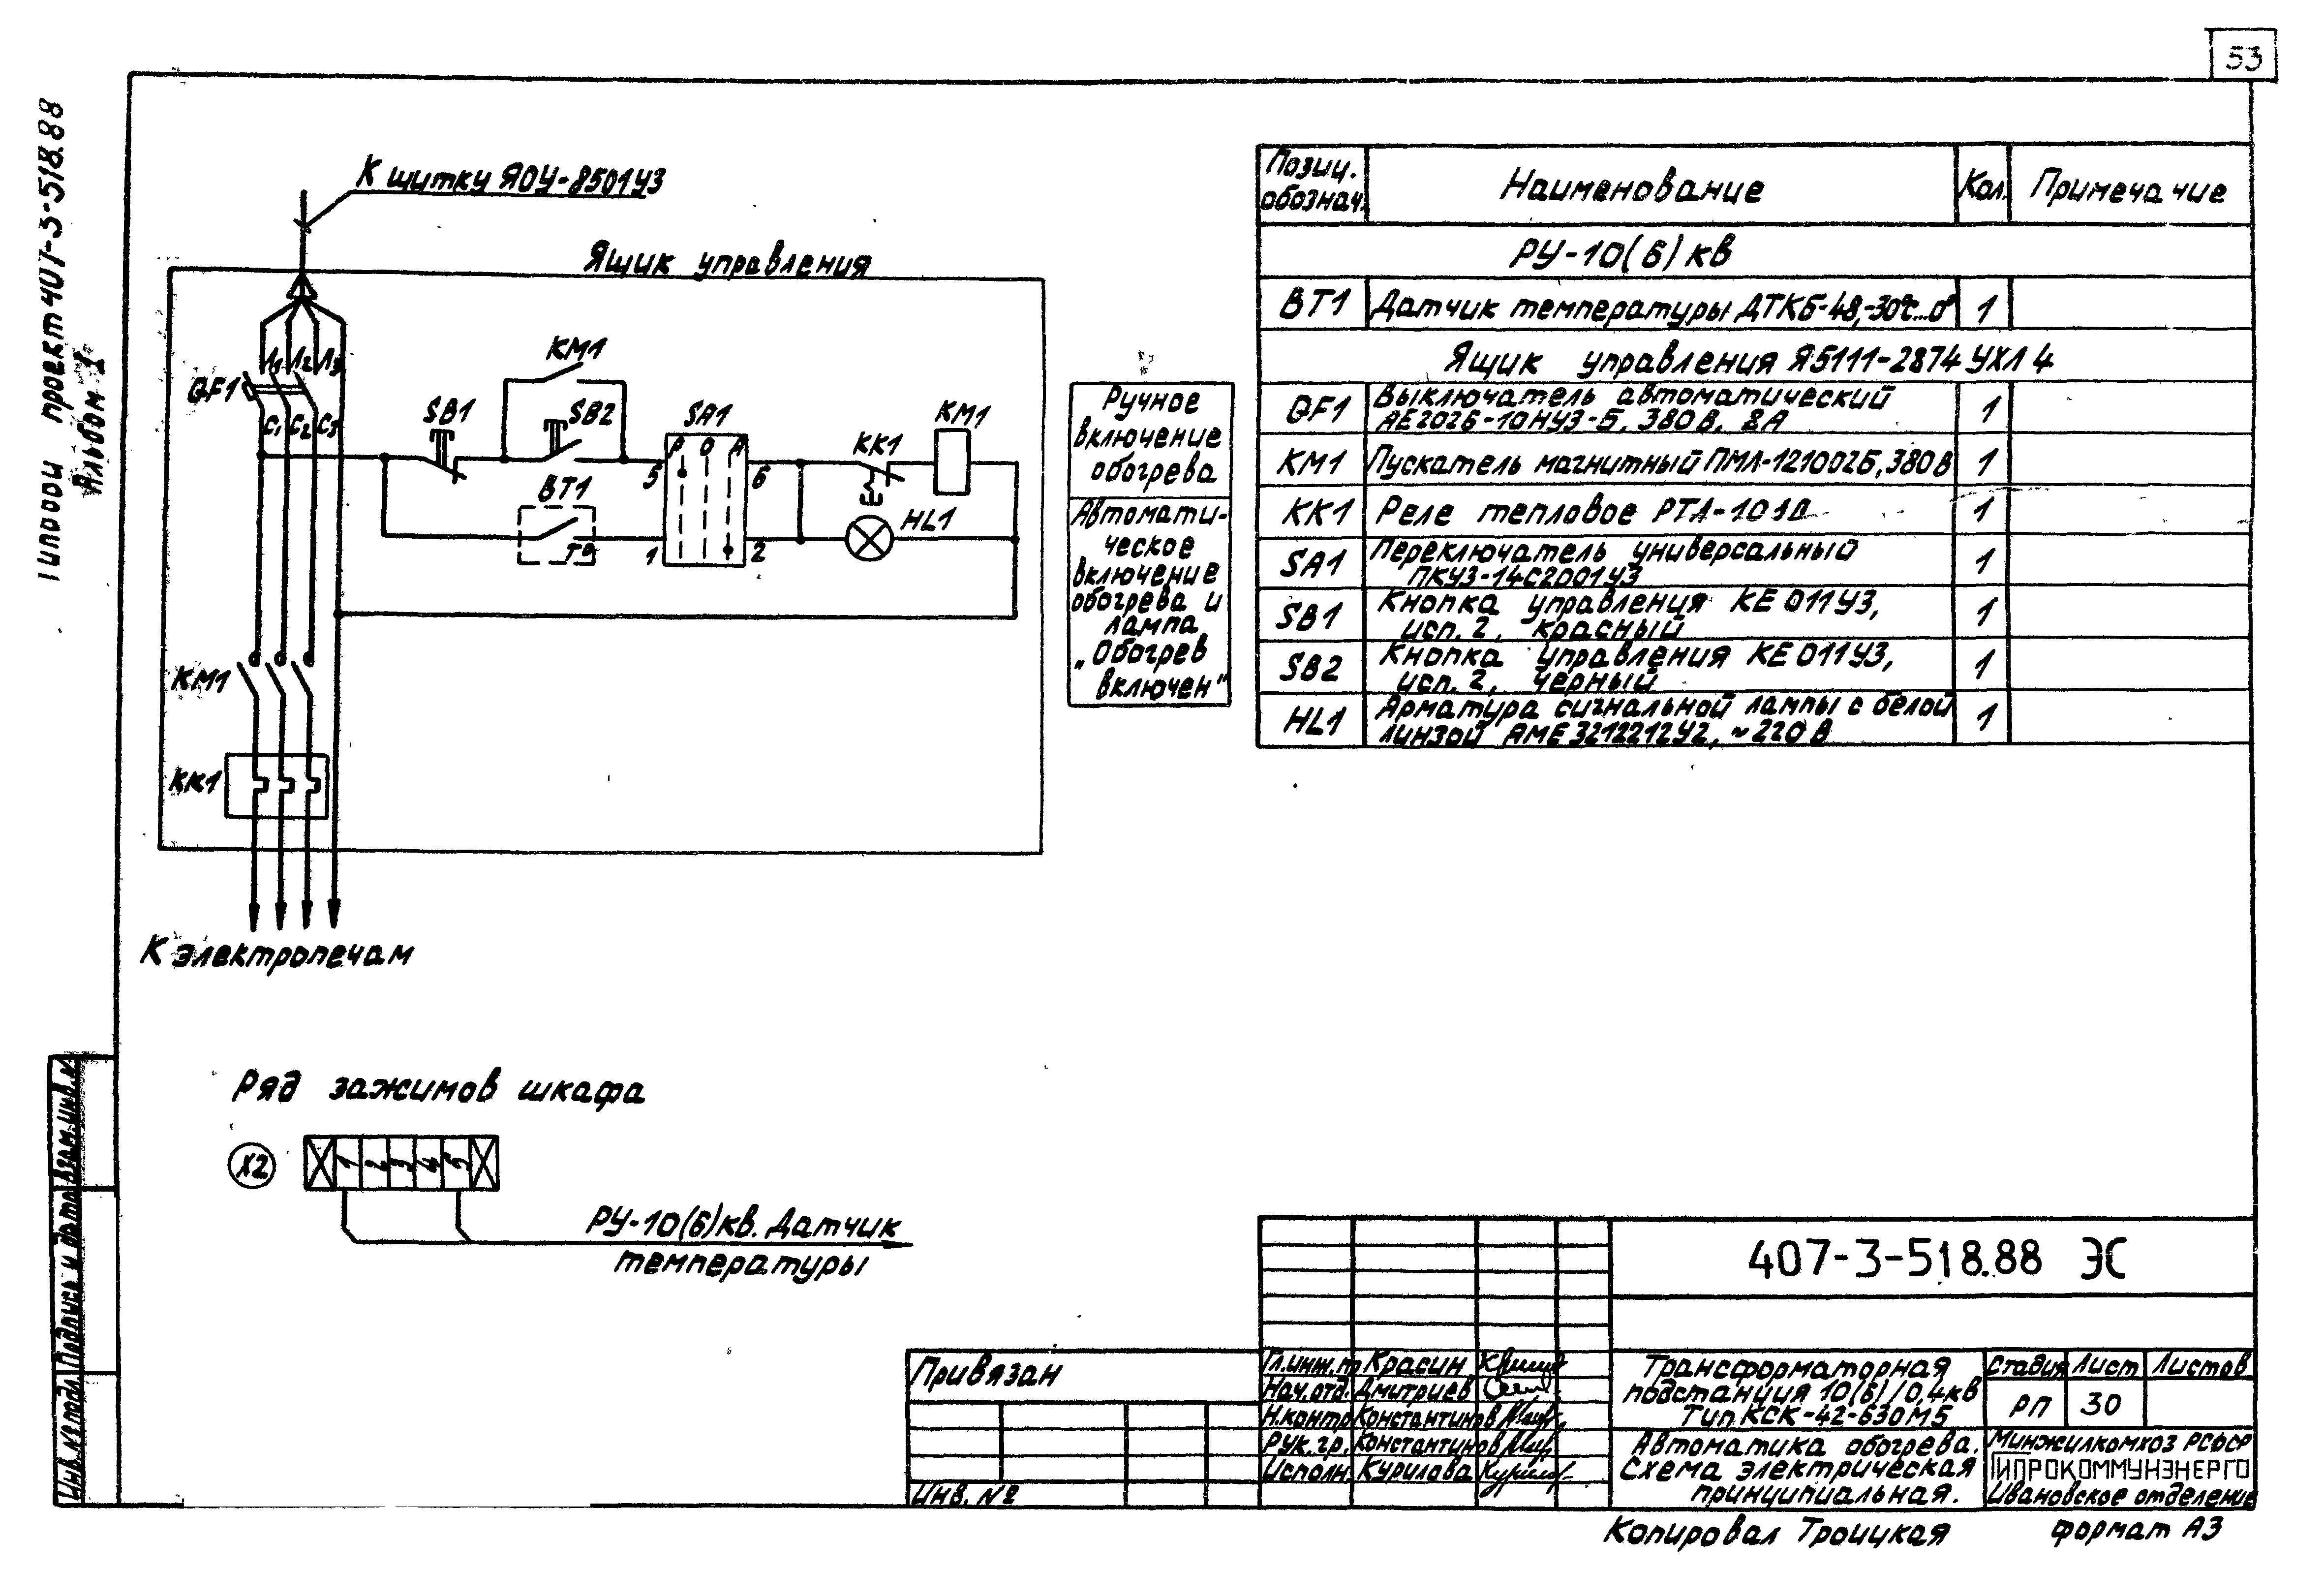 53
Типовой проект 407-3-518.88
Альбом 1
К щитку ЯОУ-8501У3
Ящик управления
QF1
Л1 Л2 Л3
С1 С2 С3
SB1
KM1
SB2
SA1
Р О А
5
6
1
2
BT1
t°
KK1
KM1
HL1
KM1
KK1
К электропечам
Ручное
включение
обогрева
Автомати-
ческое
включение
обогрева и
лампа
„Обогрев
включен"
Позиц.
обознач.
Наименование
Кол.
Примечание
РУ-10(6) кв
BT1 Датчик температуры ДТКБ-48,-30°С...0° 1
Ящик управления Я5111-2874 УХЛ 4
QF1 Выключатель автоматический
АЕ2026-10НУ3-Б, 380 В, 8А 1
KM1 Пускатель магнитный ПМЛ-121002Б, 380 В 1
KK1 Реле тепловое РТЛ-1010 1
SA1 Переключатель универсальный
ПКУ3-14С2001У3 1
SB1 Кнопка управления КЕ 011У3,
исп. 2, красный 1
SB2 Кнопка управления КЕ 011У3,
исп. 2, черный 1
HL1 Арматура сигнальной лампы с белой
линзой АМЕ 3212212У2, ~220 В 1
Ряд зажимов шкафа
X2
1 2 3 4 5
РУ-10(6)кв. Датчик
температуры
Взам.инв.N
Подпись и дата
Инв.№ подл.
Привязан
Инв. №
407-3-518.88 ЭС
Гл.инж.пр Красин
Нач.отд. Дмитриев
Н.контр Константинов
Рук.гр. Константинов
Исполн. Курилова
Трансформаторная
подстанция 10(6)/0,4кв
Тип КСК-42-630М5
Стадия Лист Листов
РП 30
Автоматика обогрева.
Схема электрическая
принципиальная.
Минжилкомхоз РСФСР
ГИПРОКОММУНЭНЕРГО
Ивановское отделение
Копировал Троицкая
формат А3